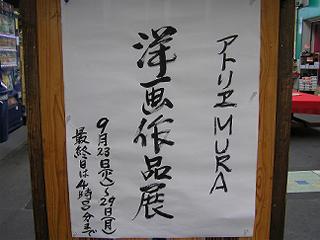 アトリエ MURA
洋画作品展
9月23日(火)～29日(月)
最終日は4時30分まで